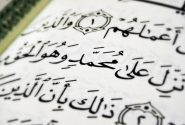 أَعْمَٰلَهُمْ ١ وَٱلَّذِينَ
نُزِّلَ عَلَىٰ مُحَمَّدٍ وَهُوَ ٱلْحَقُّ
٢ ذَٰلِكَ بِأَنَّ ٱلَّذِينَ